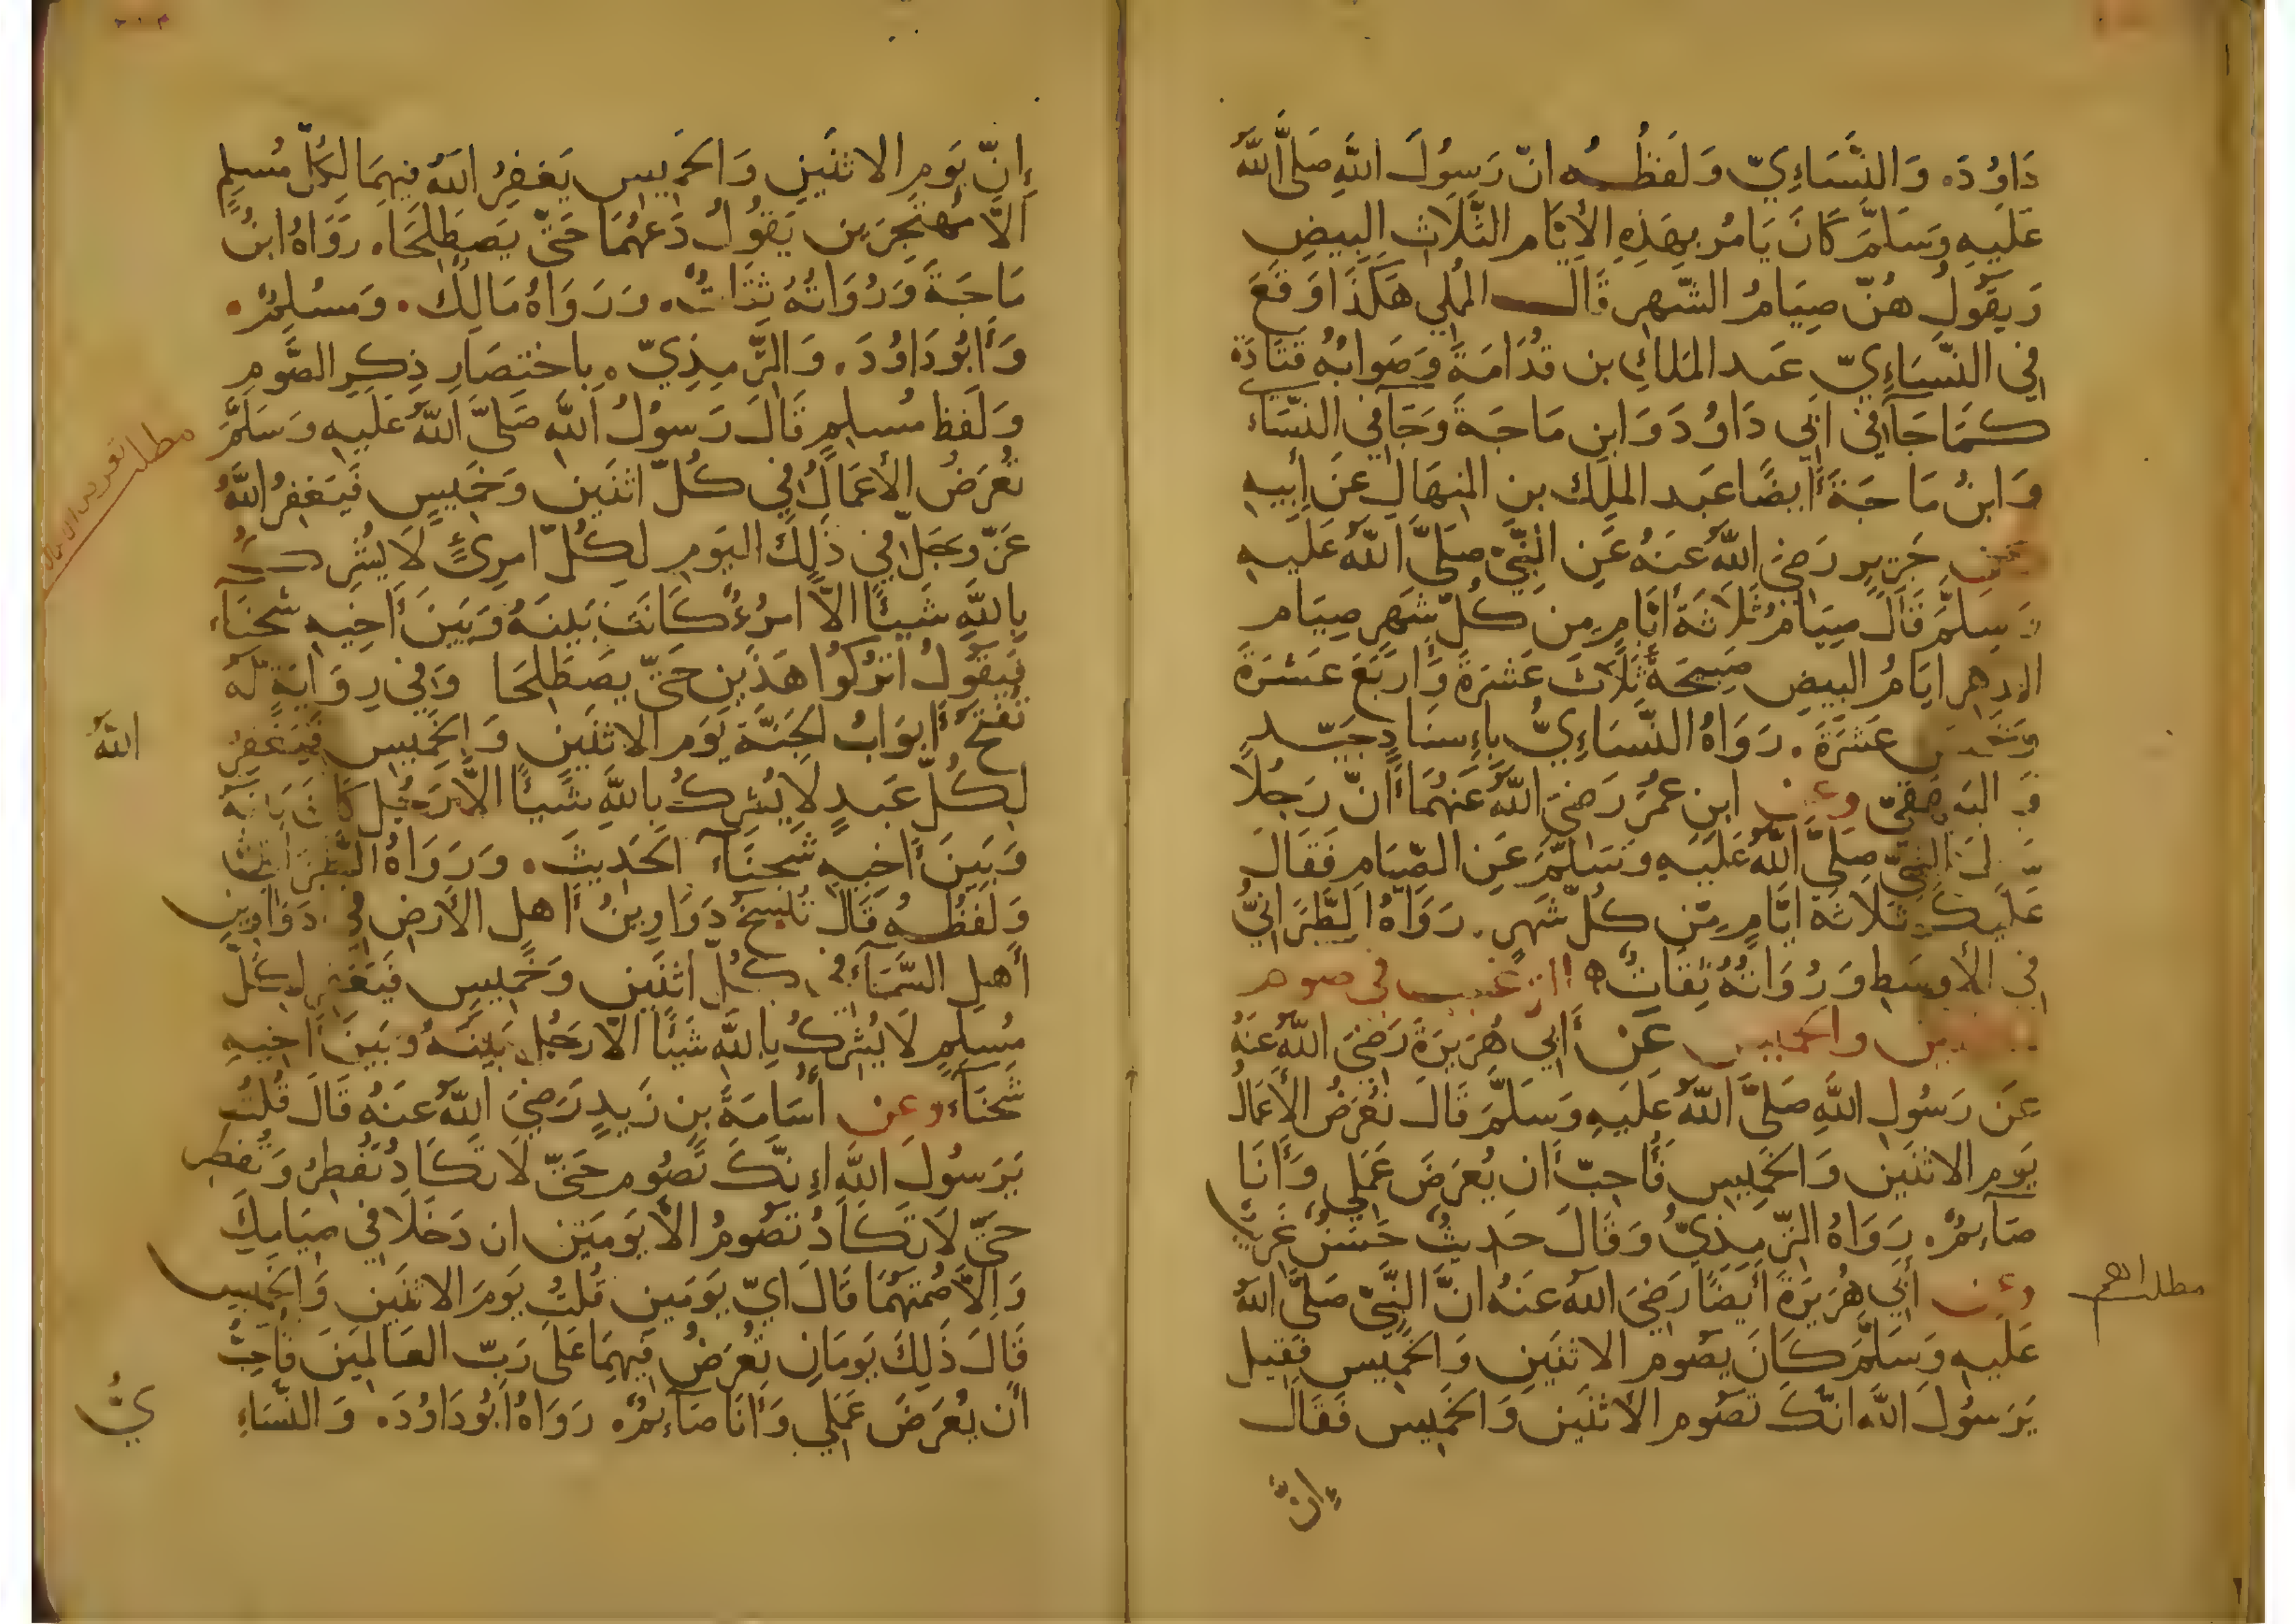 دَاوُدَ. وَالنَّسَاءِيّ وَلَفظُه انّ رَسِوُلَ اللَّهِ صَلَّى اللَّهُ
عَلَيهِ وَسَلَّمَ كَانَ يَامُر بِهَذِهِ الأَيَّام الثَّلَاثِ البِيضِ
وَيقُولُ هُنّ صِيَامُ الشّهرِ قَال المُملي هَكَذَا وَقَعَ
فِي النّسَاءِيّ عَبد المَلكِ بن قُدَامَةَ وَصَوابُه قَتَادَة
كمَا جَآ فِي ابِي دَاوُدَ وَابنِ مَاجَةَ وَجَآ فِي النّسَاء
وَابنُ مَاجَةَ أَيضًا عَبد المَلِك بنِ المِنهَالِ عَن أَبِيهِ
عن جَرِيرٍ رَضِيَ اللَّهُ عَنهُ عَنِ النَّبِيّ صَلَّى اللَّهُ عَلَيهِ
وَسَلَّمَ قَالَ صِيَامُ ثَلَاثَةَ أَيَّامٍ مِن كُلّ شَهرٍ صِيَام
الدهرِ ايَامُ البيضِ صَبِيحَةَ ثَلَاثَ عَشرَةَ وَأَربَعَ عَشرَةَ
وَخَمسَ عَشرَةَ. رَوَاهُ النَّسَاءِيُّ بِإِسنَادٍ جَيّدٍ
وَالبَيهَقيّ وعن ابنِ عُمَرَ رَضِيَ اللَّهُ عَنهُمَا أَنّ رَجُلًا
سَأَلَ النَّبِيّ صَلَّى اللَّهُ عَلَيهِ وَسَلَّمَ عَنِ الصِّيَامِ فَقَالَ
عَلَيكَ بثَلَاثَةِ ايَّامٍ مِن كُلّ شَهرٍ. رَوَاهُ الطَّبَرَانِيُّ
فِي الأَوسَطِ وَرُوَاتُهُ ثِقَاتٌ ه الترغيب في صوم
الاثنين والخميس عَن أَبِي هُرَيرَةَ رَضِيَ اللَّهُ عَنهُ
عَن رَسُولِ اللَّهِ صَلَّى اللَّهُ عَلَيهِ وَسَلَّمَ قَالَ تُعرَضُ الأَعمَالُ
يَوم الاثنَين وَالخَمِيسِ فَأُحِبّ أَن يُعرَضَ عَمَلِي وَأَنَا
صَآئِمٌ. رَوَاهُ التّرمِذِيُّ وَقَالَ حَدِيثٌ حَسَنٌ غَرِيبٌ
وعن أَبِي هُرَيرَةَ أَيضًا رَضِيَ اللَّهُ عَنهُ انَّ النَّبِيّ صَلَّى اللَّهُ
عَلَيهِ وَسَلَّمَ كَانَ يَصُوم الاثنَينِ وَالخَمِيسِ فَقِيل
يَرَسُولَ اللَّهِ انّكَ تصُوم الاثنَينِ وَالخَمِيسِ فَقَالَ
إِنَّ
إِنّ يَوم الاثنَينِ وَالخَمِيسِ يَغفِرُ اللَّهُ فِيهِمَا لِكُلّ مُسلِمٍ
الَّا مُهتَجِرَينِ يَقُولُ دَعهُمَا حَتَّى يَصطَلِحَا. رَوَاهُ ابنُ
مَاجَةَ وَرُوَاتُهُ ثِقَاتٌ. وَرَوَاهُ مَالِكٌ. وَمسُلِمٌ.
وَأَبُو دَاوُدَ. وَالتِّرمِذِيّ. باختصَارِ ذِكرِ الصَّومِ
وَلَفظ مُسلِمٍ قَالَ رَسوُلُ اللَّهِ صَلَّى اللَّهُ عَلَيهِ وَسَلَّمَ
تُعرَضُ الأَعمَالُ فِي كُلّ اثنَينِ وَخَمِيسٍ فَيَغفِرُ اللَّهُ
عَزّ وَجَلّ فِي ذَلِكَ اليَومِ لِكُلّ امرِئٍ لَا يُشرِكُ
بِاللَّهِ شَيئًا الَّا امرُءٌ كَانَت بَينَهُ وَبَينَ أَخِيهِ شَحنَآءُ
فَيَقُولُ اترُكُوا هَذَينِ حَتَّى يَصطَلِحَا وَفِي رِوَايَةٍ لَهُ
تُفتَحُ أَبوَابُ الجَنَّةِ يَوم الاثنَينِ وَالخَمِيسِ فَيَغفِرُ
اللَّهُ
لِكُلّ عَبدٍ لَا يُشرِكُ بِاللَّهِ شَيئًا الَّا رَجُل كَانَ بَينَهُ
وَبَينَ أَخِيهِ شَحنَآءُ الحَدِيثَ. وَرَوَاهُ الطَّبَرَانِيُّ
وَلَفظُه قَالَ تُنسَخُ دَوَاوِينُ أَهلِ الأَرضِ فِي دَوَاوِينِ
أَهلِ السَّمَآءِ فِي كُلّ اثنَينِ وَخَمِيسٍ فَيَغفِرُ لِكُلّ
مُسلِمٍ لَا يُشرِكُ بِاللَّهِ شَيئًا الَّا رَجُل بَينَهُ وَبَينَ اخِيهِ
شَحنَآءُ وعن أُسَامَةَ بنِ زَيدٍ رَضِيَ اللَّهُ عَنهُ قَالَ قُلتُ
يَرَسُولَ اللَّهِ إِنّكَ تَصُوم حَتّى لَا تَكَادُ تُفطِرُ وَتُفطِر
حَتّى لَا تَكَادُ تَصُومُ الَّا يَومَينِ ان دَخَلَا فِي صِيَامِكَ
وَالَّا صُمتَهُمَا قَالَ ايّ يَومَينِ قُلتُ يَومَ الاثنَينِ وَالخَمِيس
قَالَ ذَلِكَ يَومَانِ تُعرَضُ فِيهِمَا عَلَى رَبّ العَالَمِينَ فَأُحِبُّ
أَن يُعرَضَ عَمَلِي وَأَنَا صَآئِمٌ. رَوَاهُ أَبُو دَاوُدَ. وَالنَّسَاءِ
يُّ
مطلب